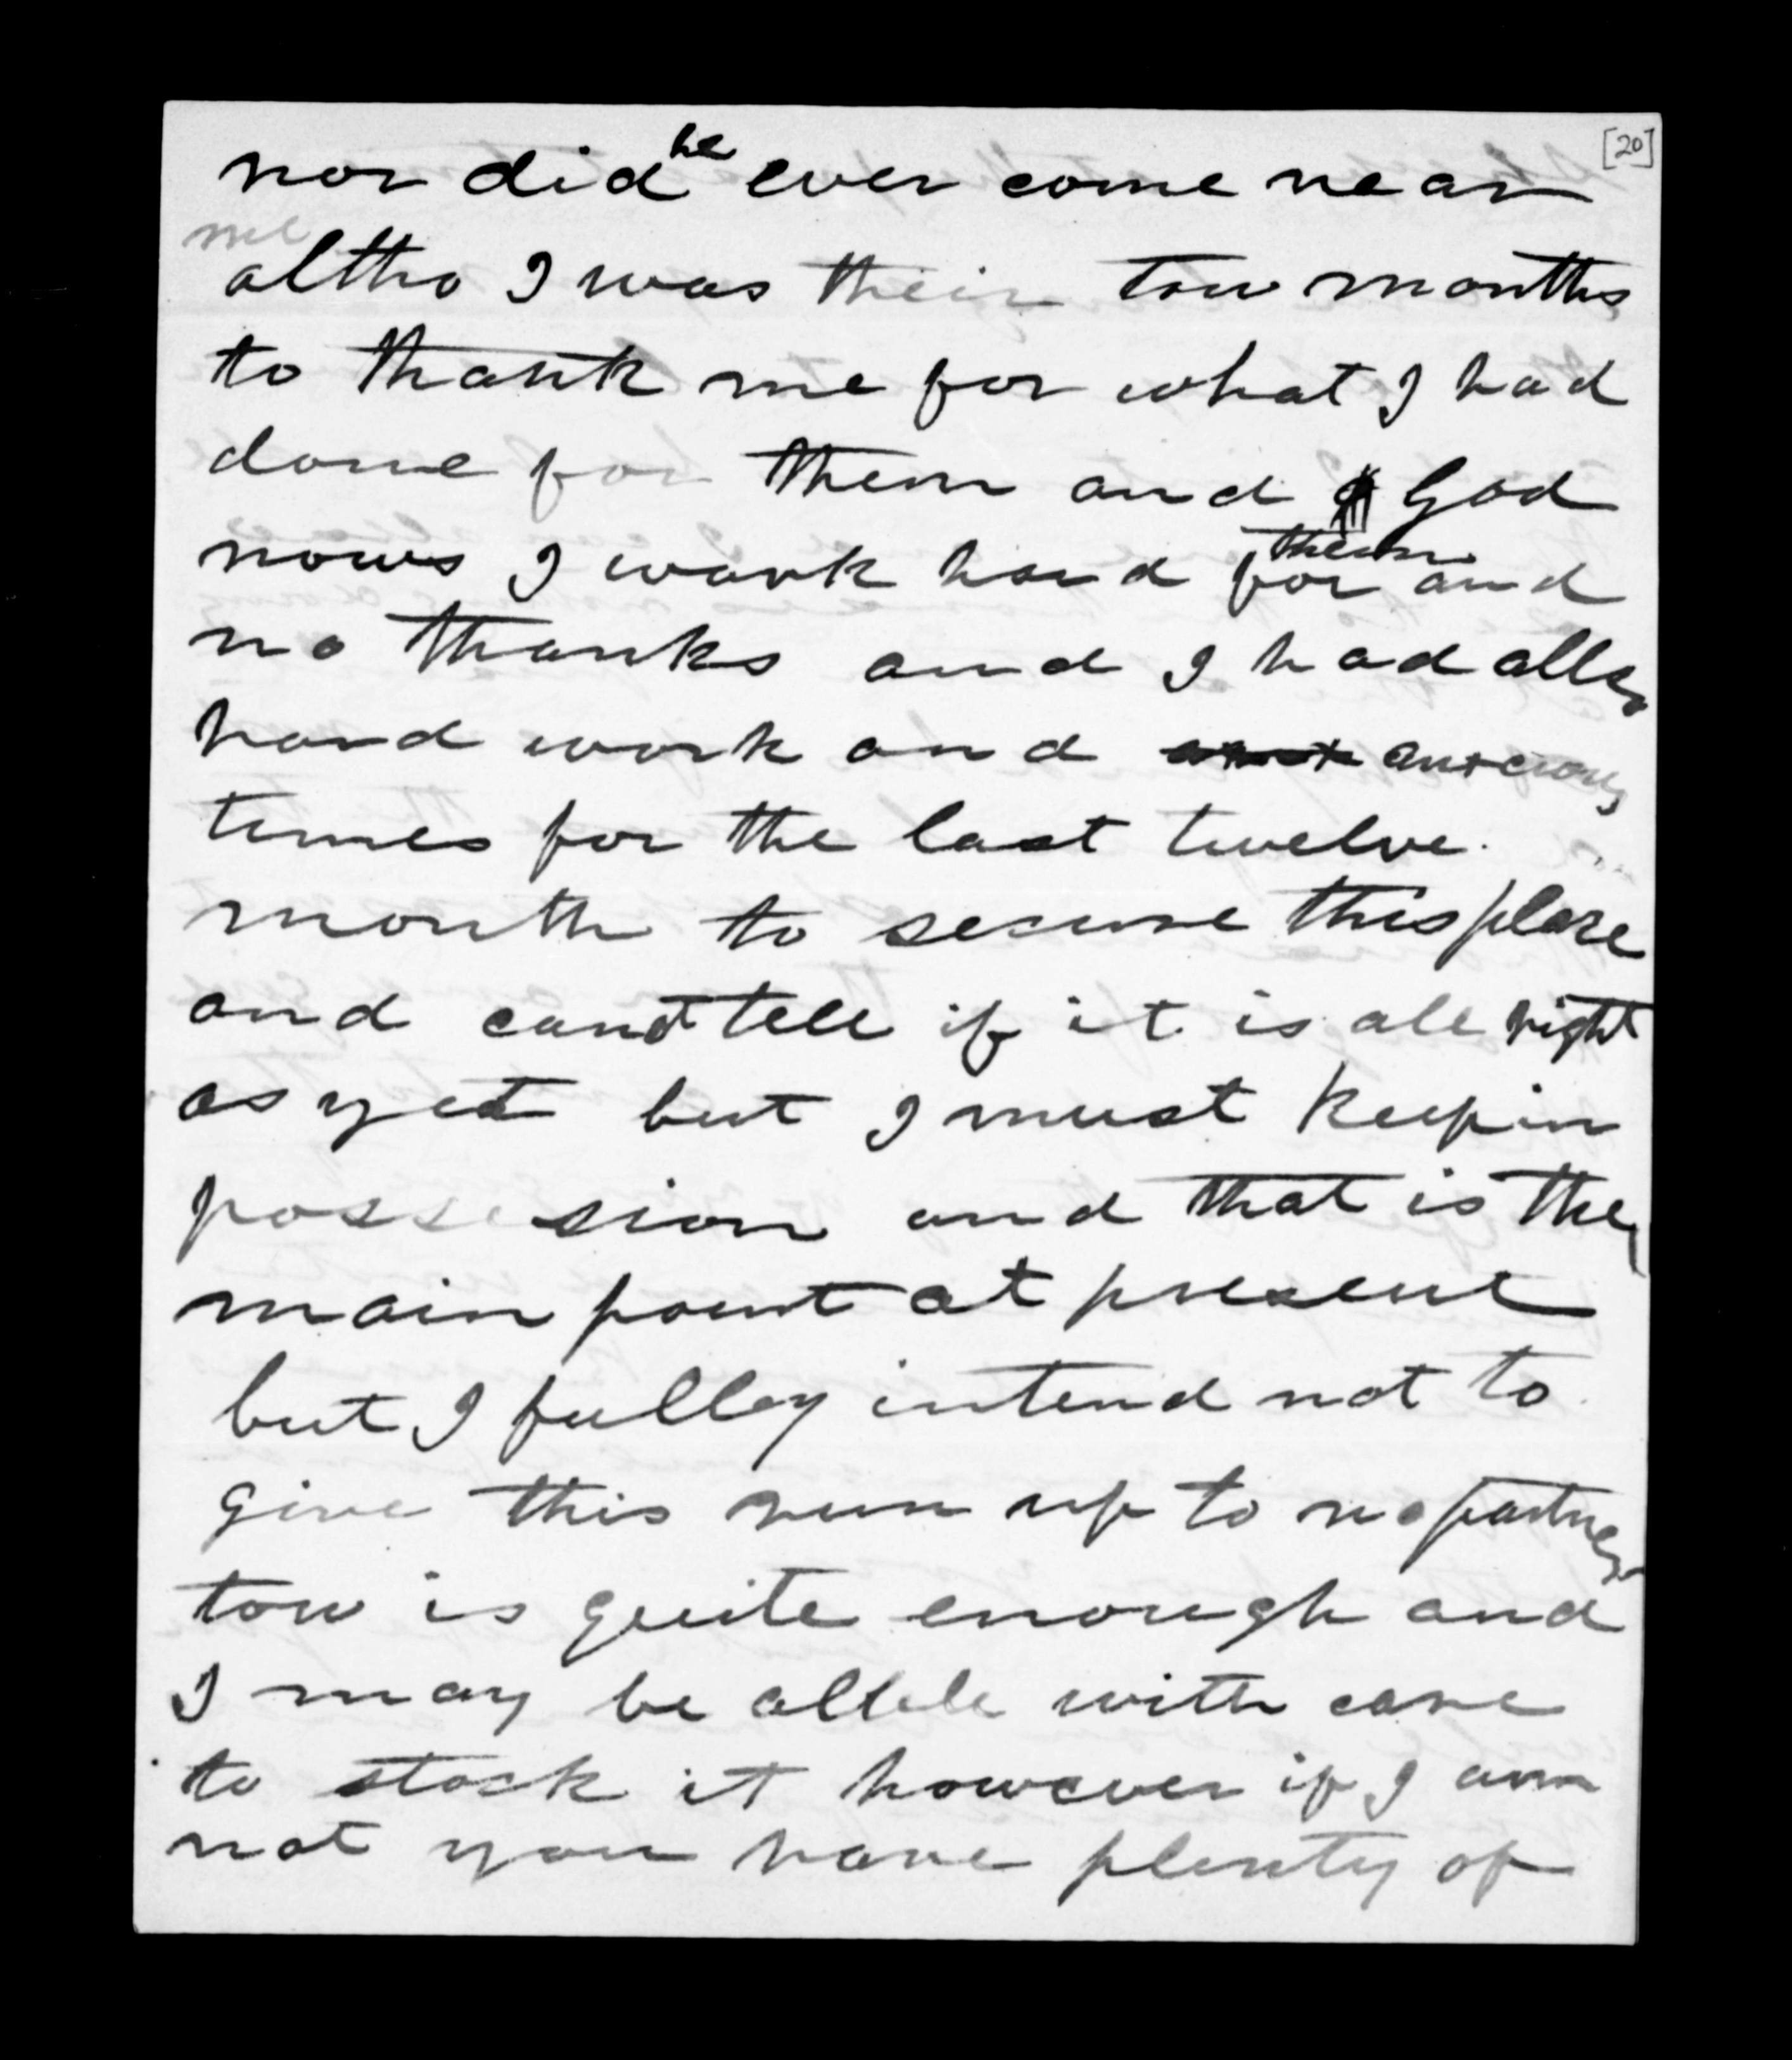 [20]
nor did he ever come near
me
altho I was their tow months
to thank me for what I had
done for them and God
nows I work hard for them and
no thanks and I had allso
hard work and anxcious
times for the last twelve
month to secure this place
and canot tell if it is all right
as yet but I must keep in
possession and that is the
main point at present
but I fulley intend not to
give this run up to no partner
tow is quite enough and
I may be allele with care
to stock it however if I am
not you have plenty of